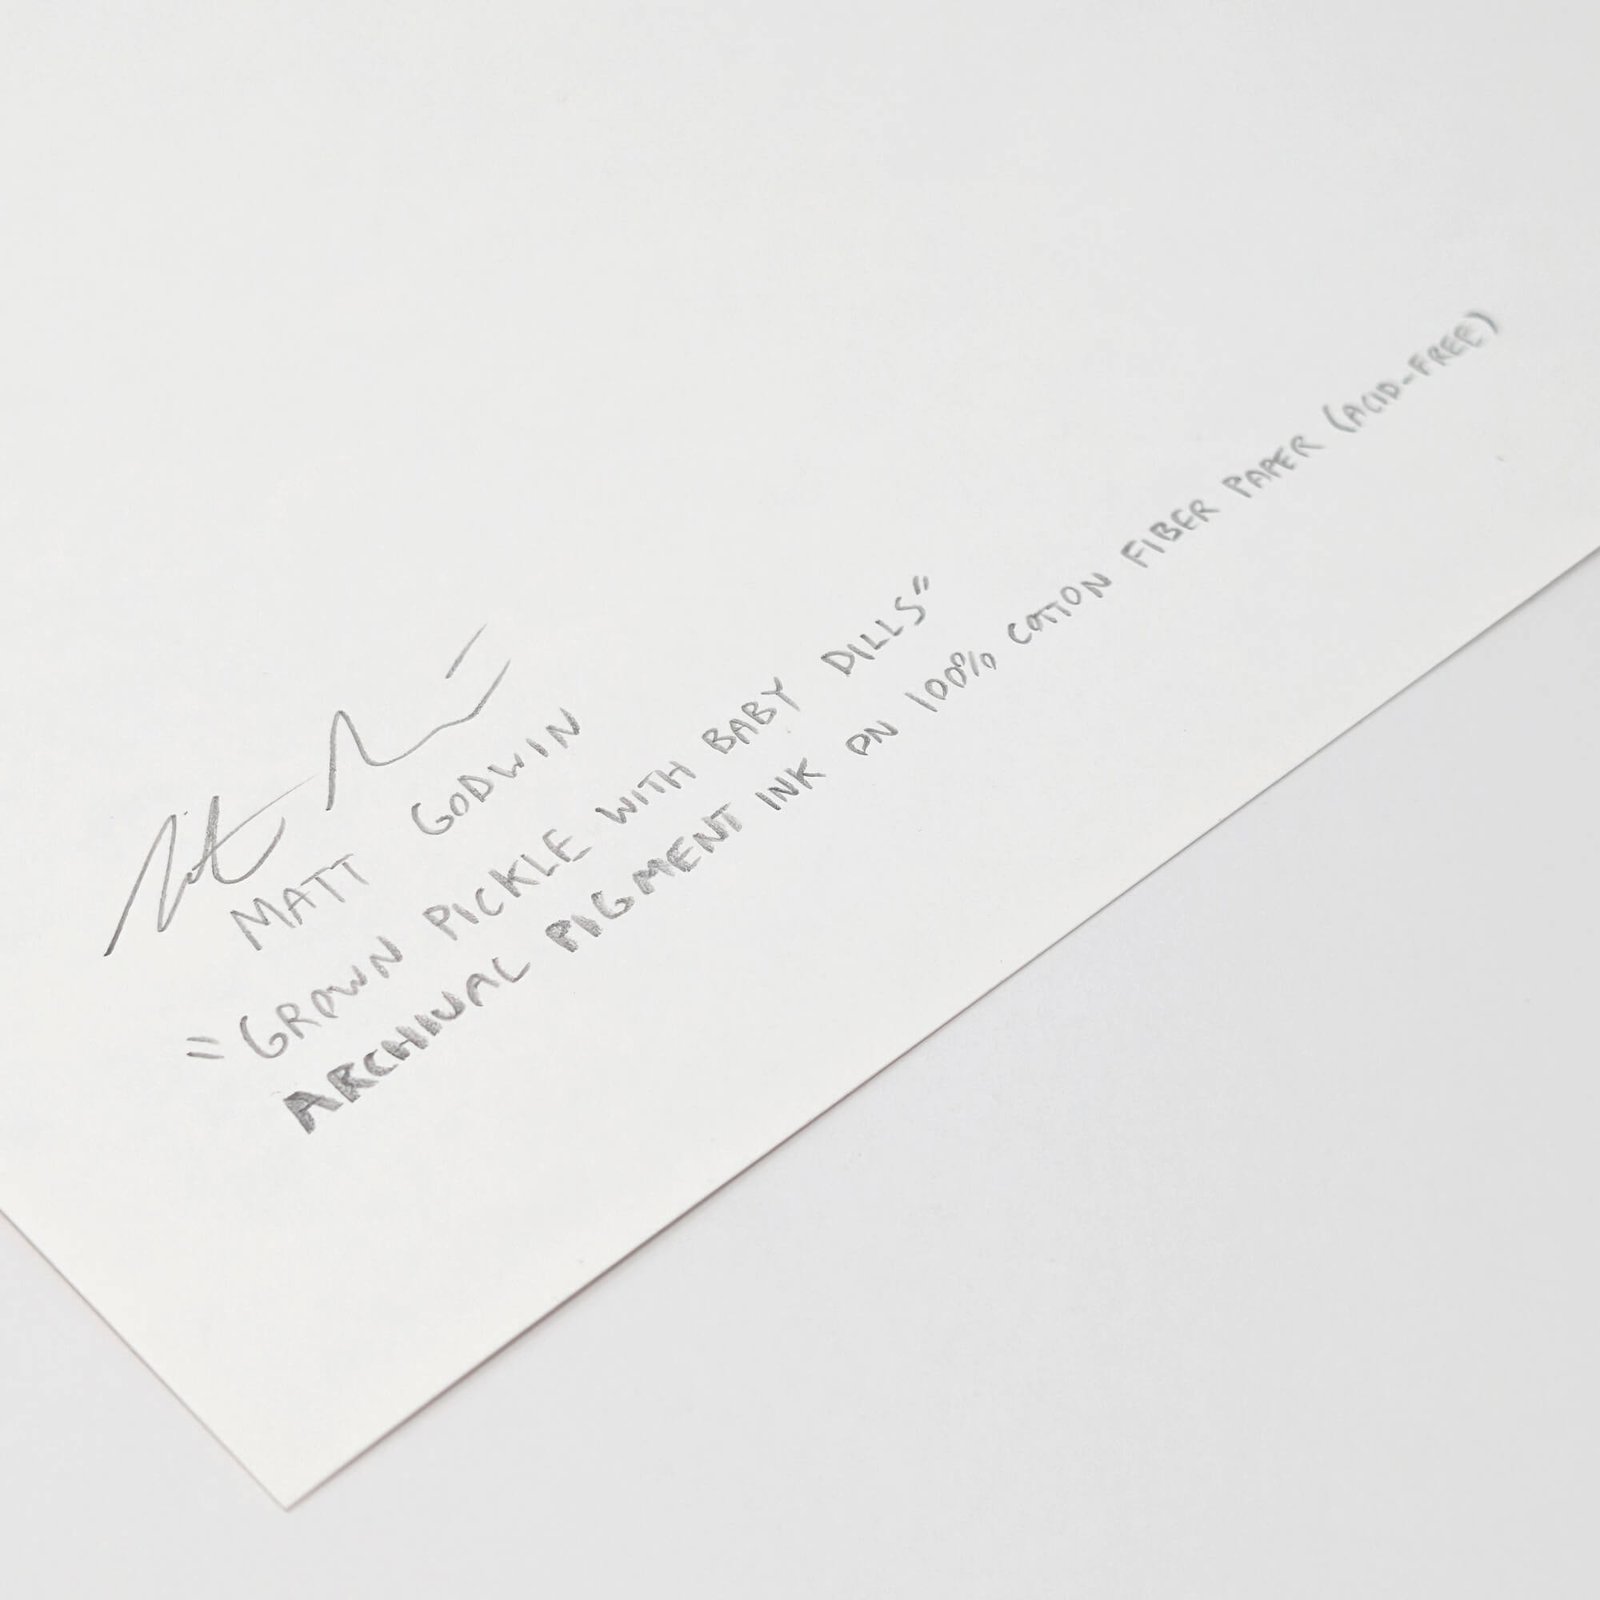 MATT GODWIN
"GROWN PICKLE WITH BABY DILLS"
ARCHIVAL PIGMENT INK ON 100% COTTON FIBER PAPER (ACID-FREE)